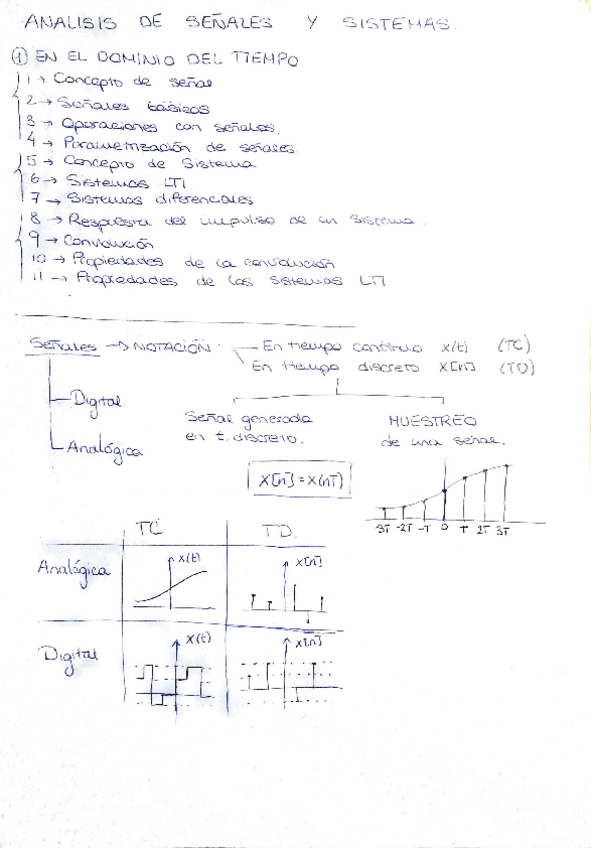 ANALISIS DE SEÑALES Y SISTEMAS.
① EN EL DOMINIO DEL TIEMPO
1 → Concepto de señal
2 → Señales básicas
3 → Operaciones con señales.
4 → Parametrización de señales
5 → Concepto de Sistema
6 → Sistemas LTI
7 → Sistemas diferenciales
8 → Respuesta del impulso de un sistema.
9 → Convolución
10 → Propiedades de la convolución
11 → Propiedades de los sistemas LTI
Señales → NOTACIÓN
En tiempo continuo x(t) (TC)
En tiempo discreto x[n] (TD)
Digital
Analógica
Señal generada
en t. discreto.
MUESTREO
de una señal.
X[n] = X(nT)
3T -2T -T 0 T 2T 3T
TC TD.
Analógica x(t) x[n]
Digital x(t) x[n]